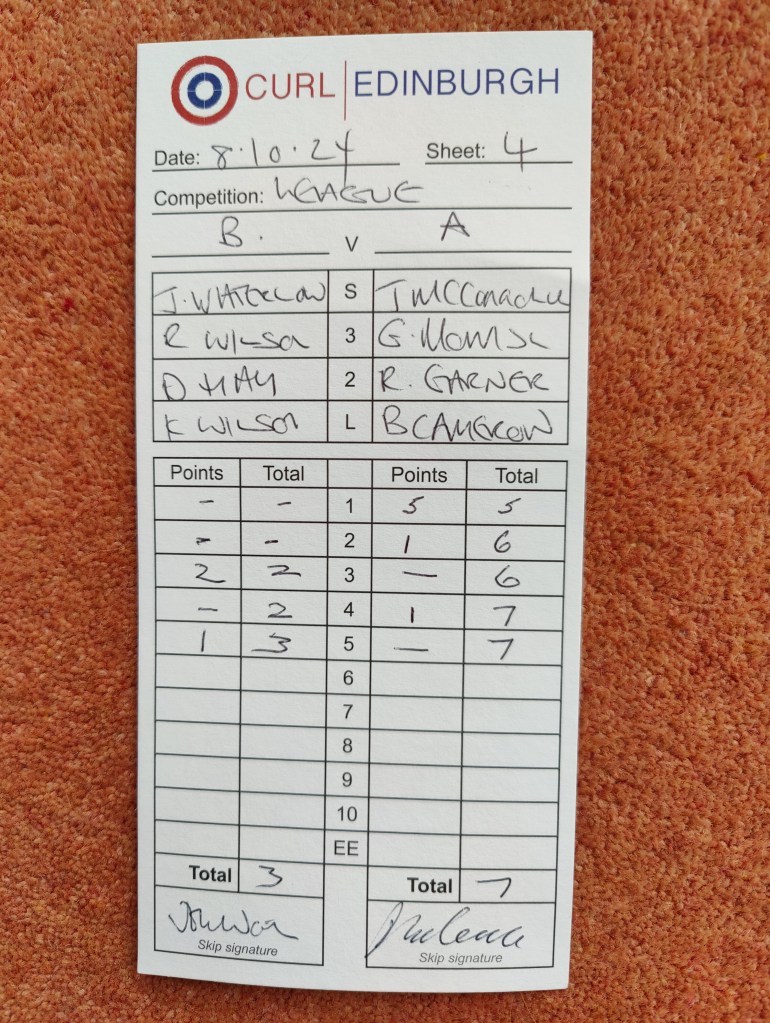 CURL | EDINBURGH
Date: 8.10.24 Sheet: 4
Competition: LEAGUE
B. V A
S
R WILSON 3 G.
D HAY 2 R. GARNER
K WILSON L B CAMERON
Points Total Points Total
- - 1 5 5
- - 2 1 6
2 2 3 — 6
- 2 4 1 7
1 3 5 — 7
6
7
8
9
10
EE
Total 3 Total 7
Skip signature Skip signature